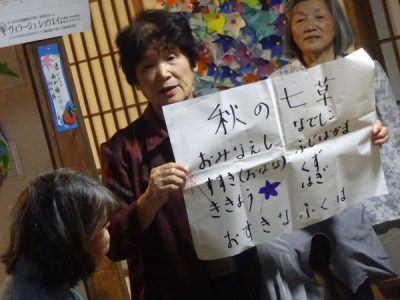 秋の七草
おみなえし なでしこ
すすき(おばな) ふじばかま
ききょう くず
はぎ
おすきなふくは